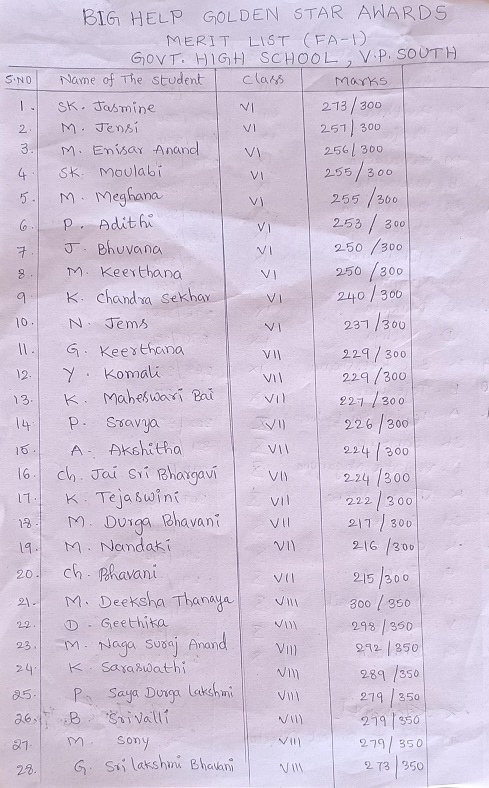 BIG HELP GOLDEN STAR AWARDS
MERIT LIST (FA-1)
GOVT. HIGH SCHOOL, V.P. SOUTH
S.NO Name of The Student Class Marks
1. SK. Jasmine VI 273/300
2. M. Jensi VI 257/300
3. M. Enisar Anand VI 256/300
4. SK. Moulabi VI 255/300
5. M. Meghana VI 255/300
6. P. Adithi VI 253/300
7. J. Bhuvana VI 250/300
8. M. Keerthana VI 250/300
9. K. Chandra Sekhar VI 240/300
10. N. Jems VI 237/300
11. G. Keerthana VII 229/300
12. Y. Komali VII 229/300
13. K. Maheswari Bai VII 227/300
14. P. Sravya VII 226/300
15. A. Akshitha VII 224/300
16. Ch. Jai Sri Bhargavi VII 224/300
17. K. Tejaswini VII 222/300
18. M. Durga Bhavani VII 217/300
19. M. Nandaki VII 216/300
20. Ch. Bhavani VII 215/300
21. M. Deeksha Thanaya VIII 300/350
22. D. Geethika VIII 298/350
23. M. Naga Suraj Anand VIII 292/350
24. K. Saraswathi VIII 289/350
25. P. Saya Durga Lakshmi VIII 279/350
26. B. Srivalli VIII 279/350
27. M. Sony VIII 279/350
28. G. Sri lakshmi Bhavani VIII 273/350